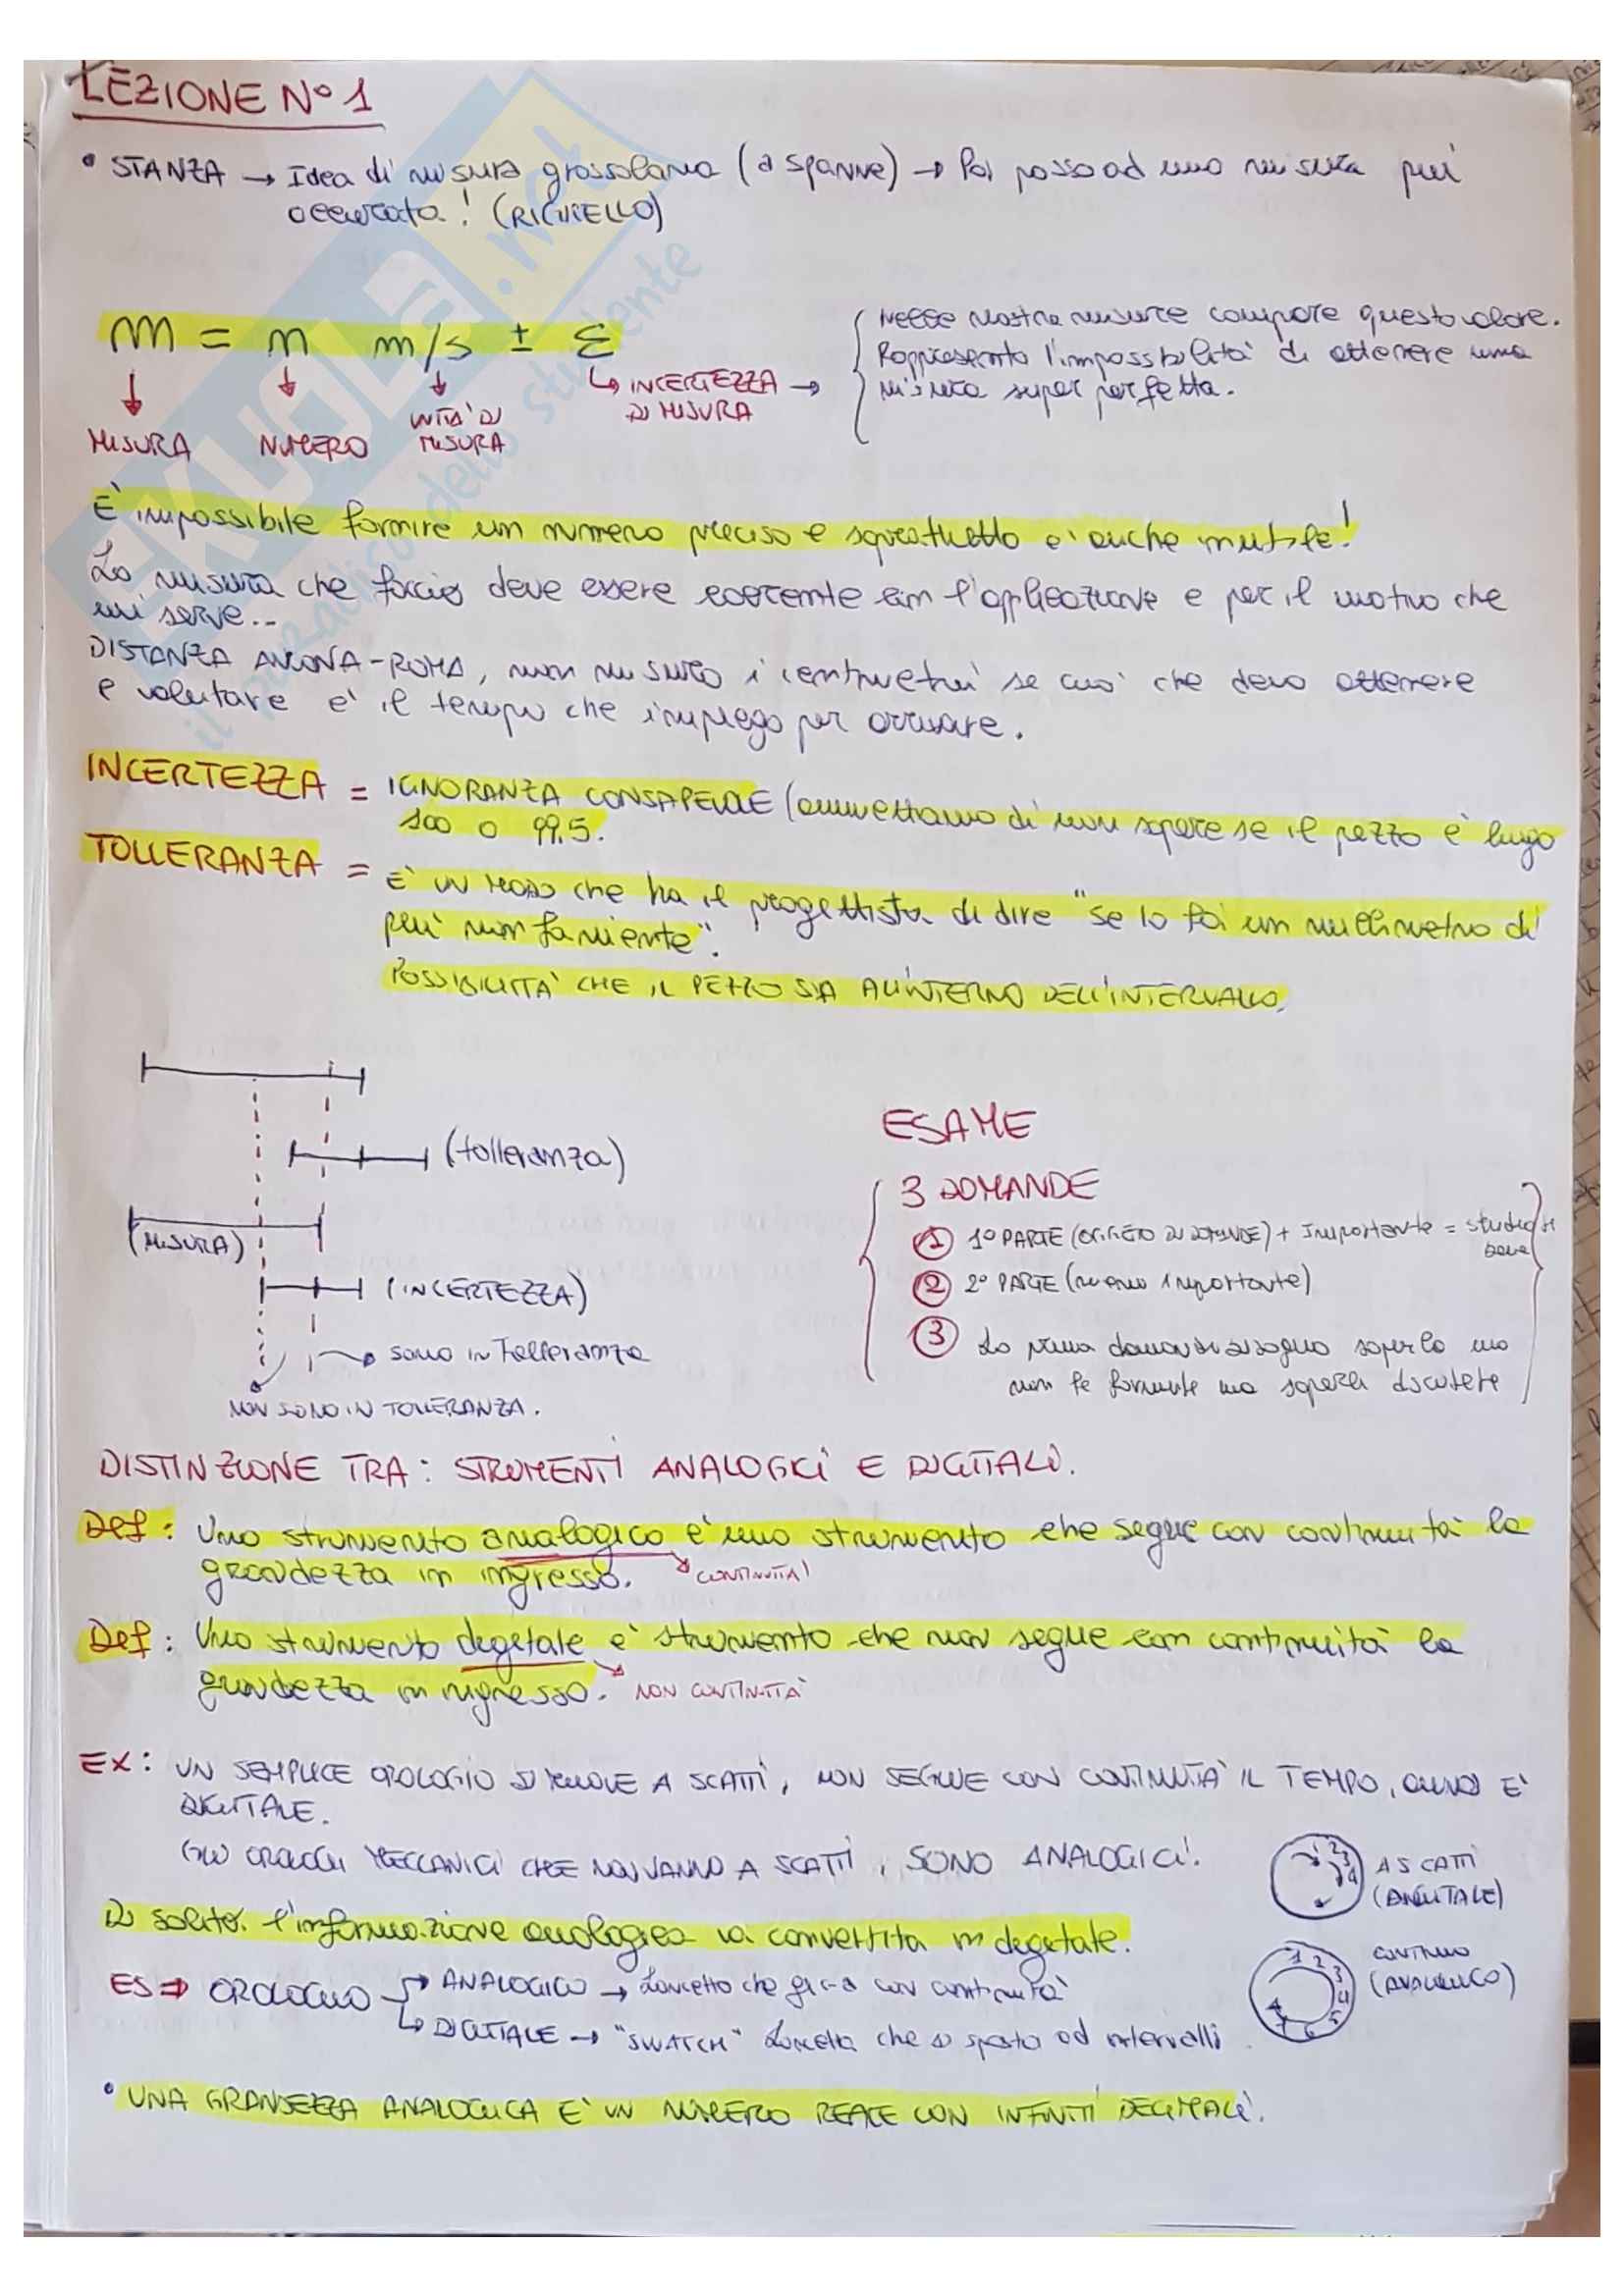 LEZIONE N° 1
• STANZA → Idea di misura grossolana (a spanne) → Poi passo ad una misura più
accurata! (RIGHELLO)
m = n m/s ± ε
MISURA
NUMERO
UNITÀ DI
MISURA
↳ INCERTEZZA →
DI MISURA
Nelle nostre misure compare questo valore.
Rappresenta l'impossibilità di ottenere una
misura super perfetta.
È impossibile fornire un numero preciso e soprattutto è anche inutile!
La misura che faccio deve essere coerente con l'applicazione e per il motivo che
mi serve...
DISTANZA ANCONA-ROMA, non misuro i centimetri se ciò che devo ottenere
e valutare è il tempo che impiego per arrivare.
INCERTEZZA = IGNORANZA CONSAPEVOLE (ammettiamo di non sapere se il pezzo è lungo
100 o 99.5.
TOLLERANZA = È UN MODO che ha il progettista di dire "se lo fai un millimetro di
più non fa niente".
POSSIBILITÀ CHE IL PEZZO SIA ALL'INTERNO DELL'INTERVALLO.
(tolleranza)
(MISURA)
(INCERTEZZA)
sono in Tolleranza
NON SONO IN TOLLERANZA.
ESAME
3 DOMANDE
① 1° PARTE (OGGETTO DI DOMANDE) + Importante = studiati
bene
② 2° PARTE (meno importante)
③ La prima domanda bisogno saperla ma
non le formule ma saperla discutere
DISTINZIONE TRA: STRUMENTI ANALOGICI E DIGITALI.
Def: Uno strumento analogico è uno strumento che segue con continuità la
grandezza in ingresso. CONTINUITÀ
Def: Uno strumento degetale è strumento che non segue con continuità la
grandezza in ingresso. NON CONTINUITÀ
EX: UN SEMPLICE OROLOGIO SI MUOVE A SCATTI, NON SEGUE CON CONTINUITÀ IL TEMPO, QUINDI È
DIGITALE.
GLI OROLOGI MECCANICI CHE NON VANNO A SCATTI, SONO ANALOGICI.
1 2 3 4
A SCATTI
(DIGITALE)
Di solito l'informazione analogica va convertita in degetale.
ES ⇒ OROLOGIO → ANALOGICO → Lancetta che gira con continuità
↳ DIGITALE → "SWATCH" Lancetta che si sposta ad intervalli
1 2 3 4 5 6 7
CONTINUO
(ANALOGICO)
• UNA GRANDEZZA ANALOGICA È UN NUMERO REALE CON INFINITI DECIMALI.
SKUOLA.net
il paradiso dello studente